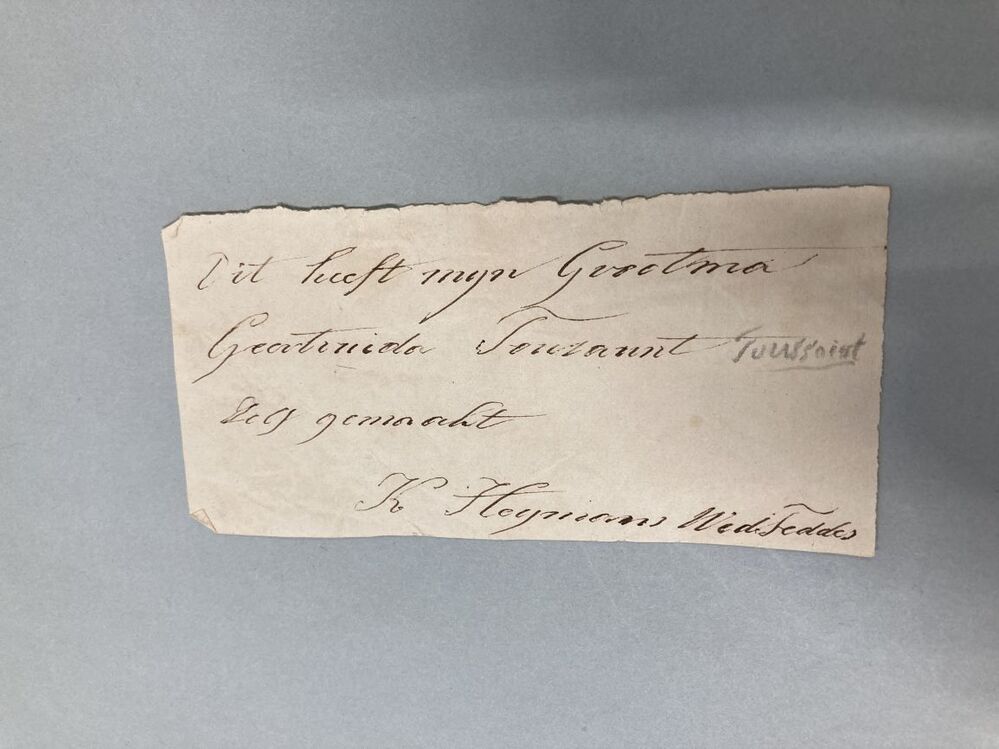 Dit heeft myn Grootma
Geertruida Touzaunt Toussaint
Zelf gemaakt
K Heymans Wed Feddes